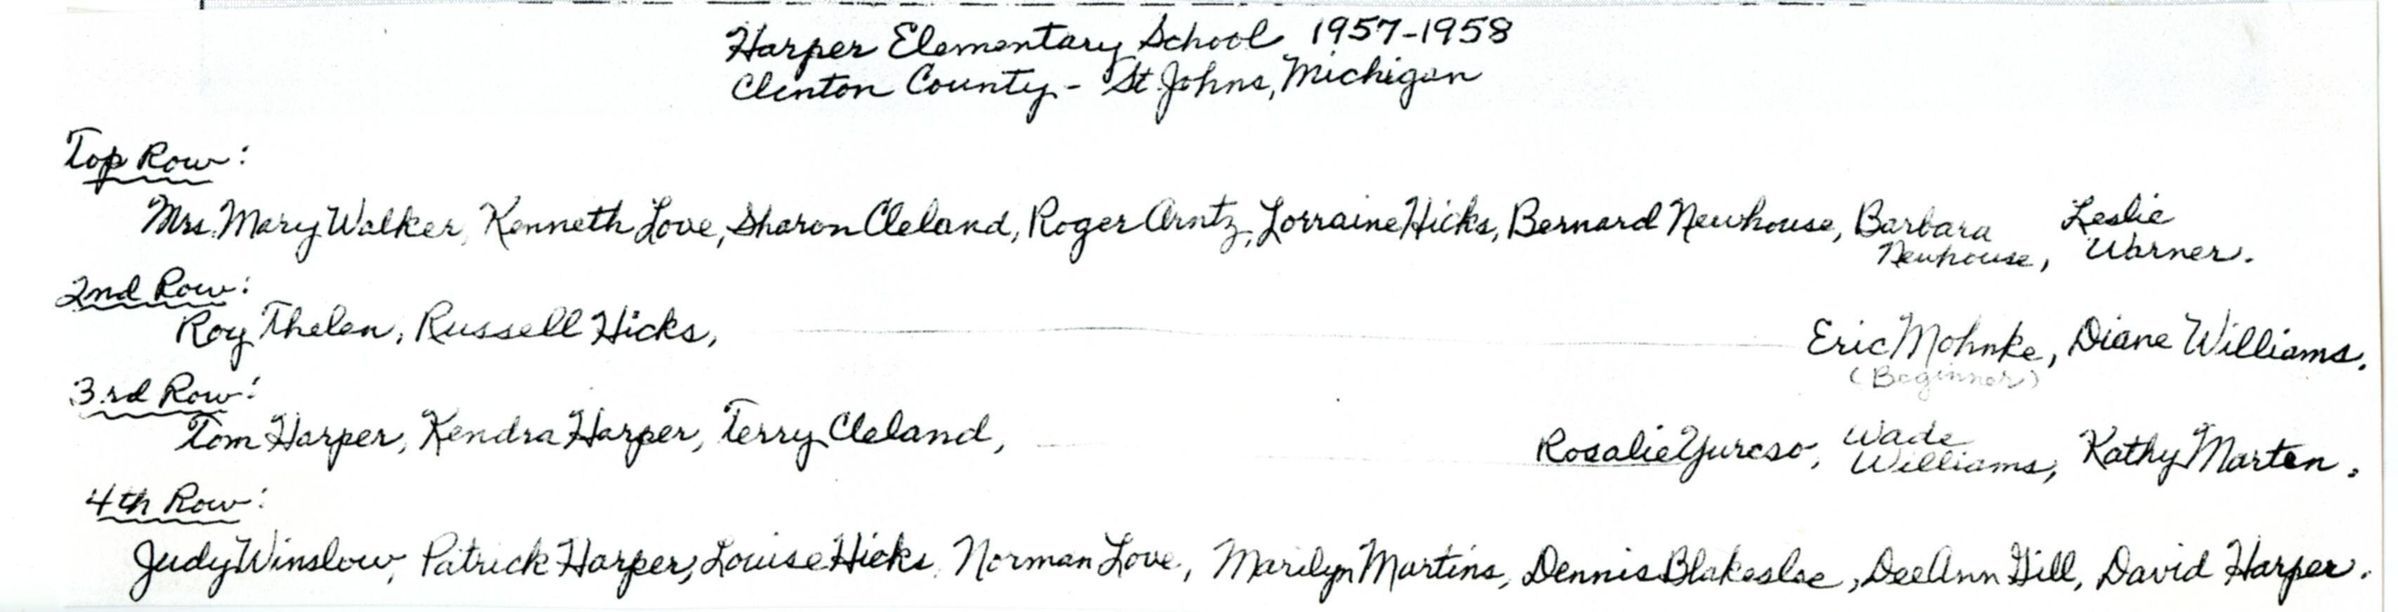 Harper Elementary School 1957-1958
Clinton County - St Johns, Michigan
Top Row:
Mrs. Mary Walker, Kenneth Love, Sharon Cleland, Roger Arntz, Lorraine Hicks, Bernard Newhouse, Barbara Newhouse, Leslie Warner.
2nd Row:
Roy Thelen, Russell Hicks, Eric Mohnke, Diane Williams.
(Beginner)
3rd Row:
Tom Harper, Kendra Harper, Terry Cleland, Rosalie Yurcso, Wade Williams, Kathy Marten.
4th Row:
Judy Winslow, Patrick Harper, Louise Hicks, Norman Love, Marilyn Martins, Dennis Blakeslee, DeeAnn Gill, David Harper.